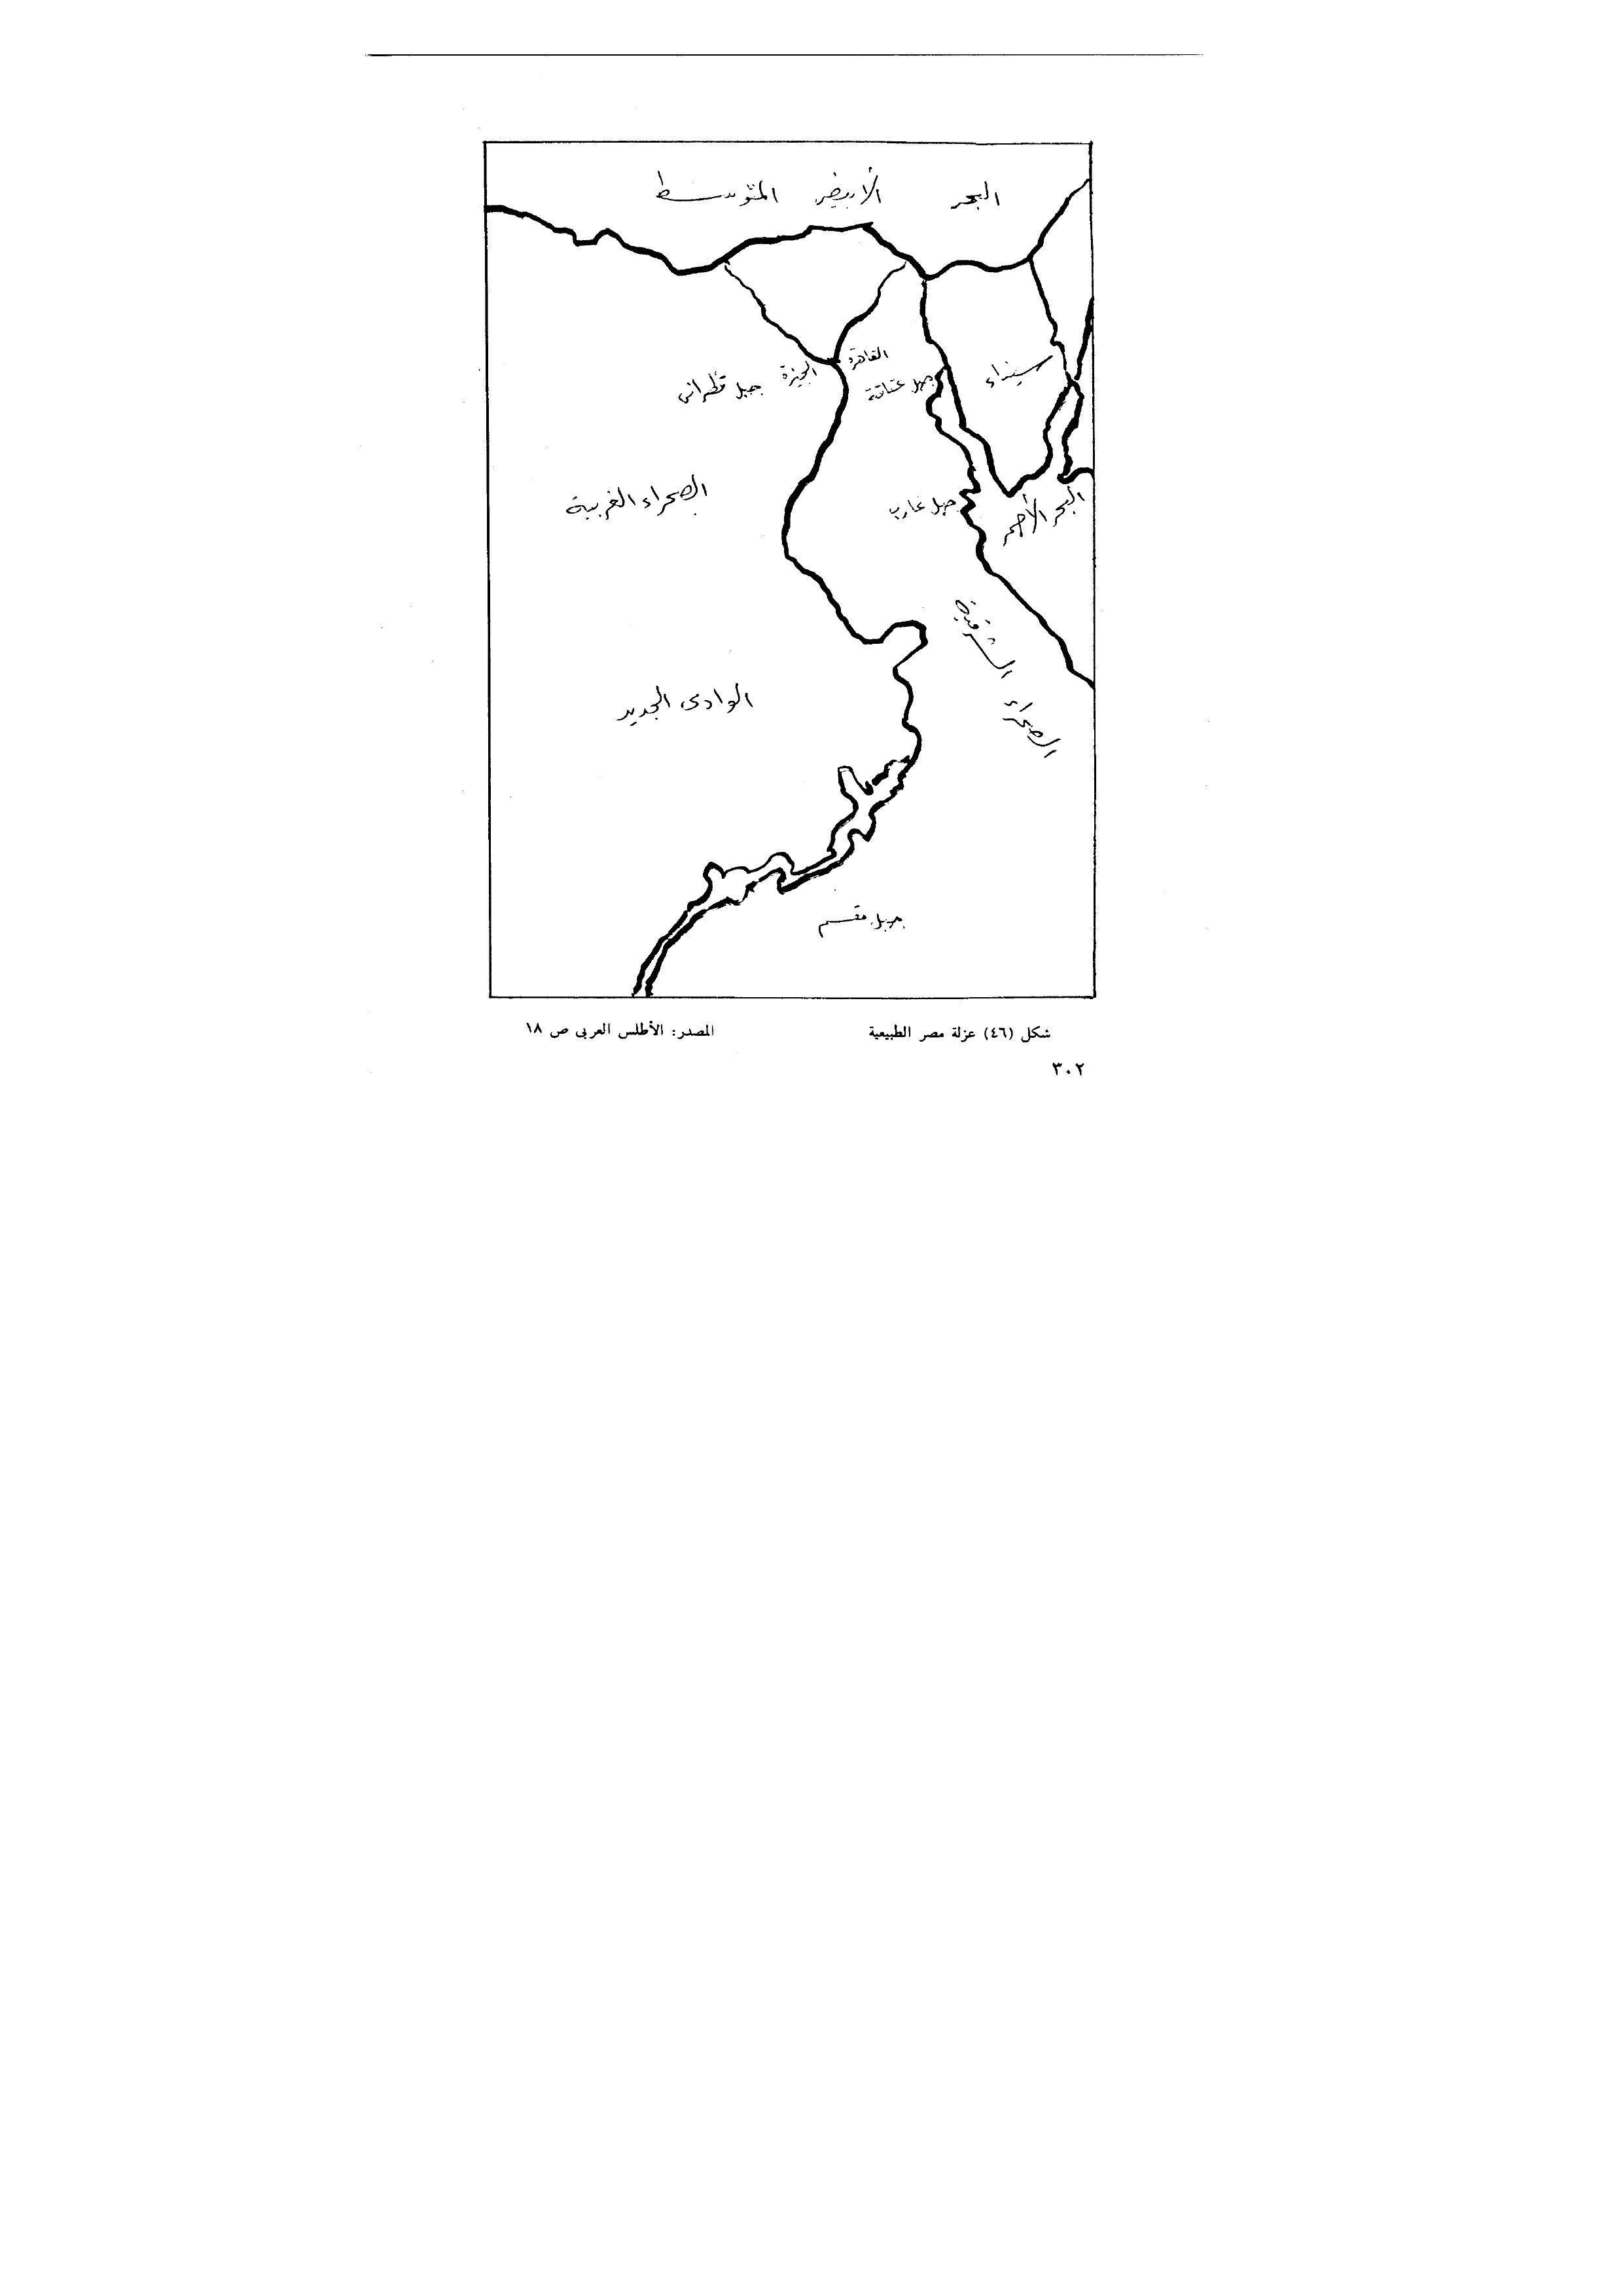 البحر الأبيض المتوسط
القاهرة
سيناء
الجيزة
جبل عتاقة
جبل قطرانى
الصحراء الغربية
جبل غارب
البحر الأحمر
الصحراء الشرقية
الوادى الجديد
جبل مقسم
شكل (٤٦) عزلة مصر الطبيعية
المصدر: الأطلس العربى ص ١٨
٣٠٢